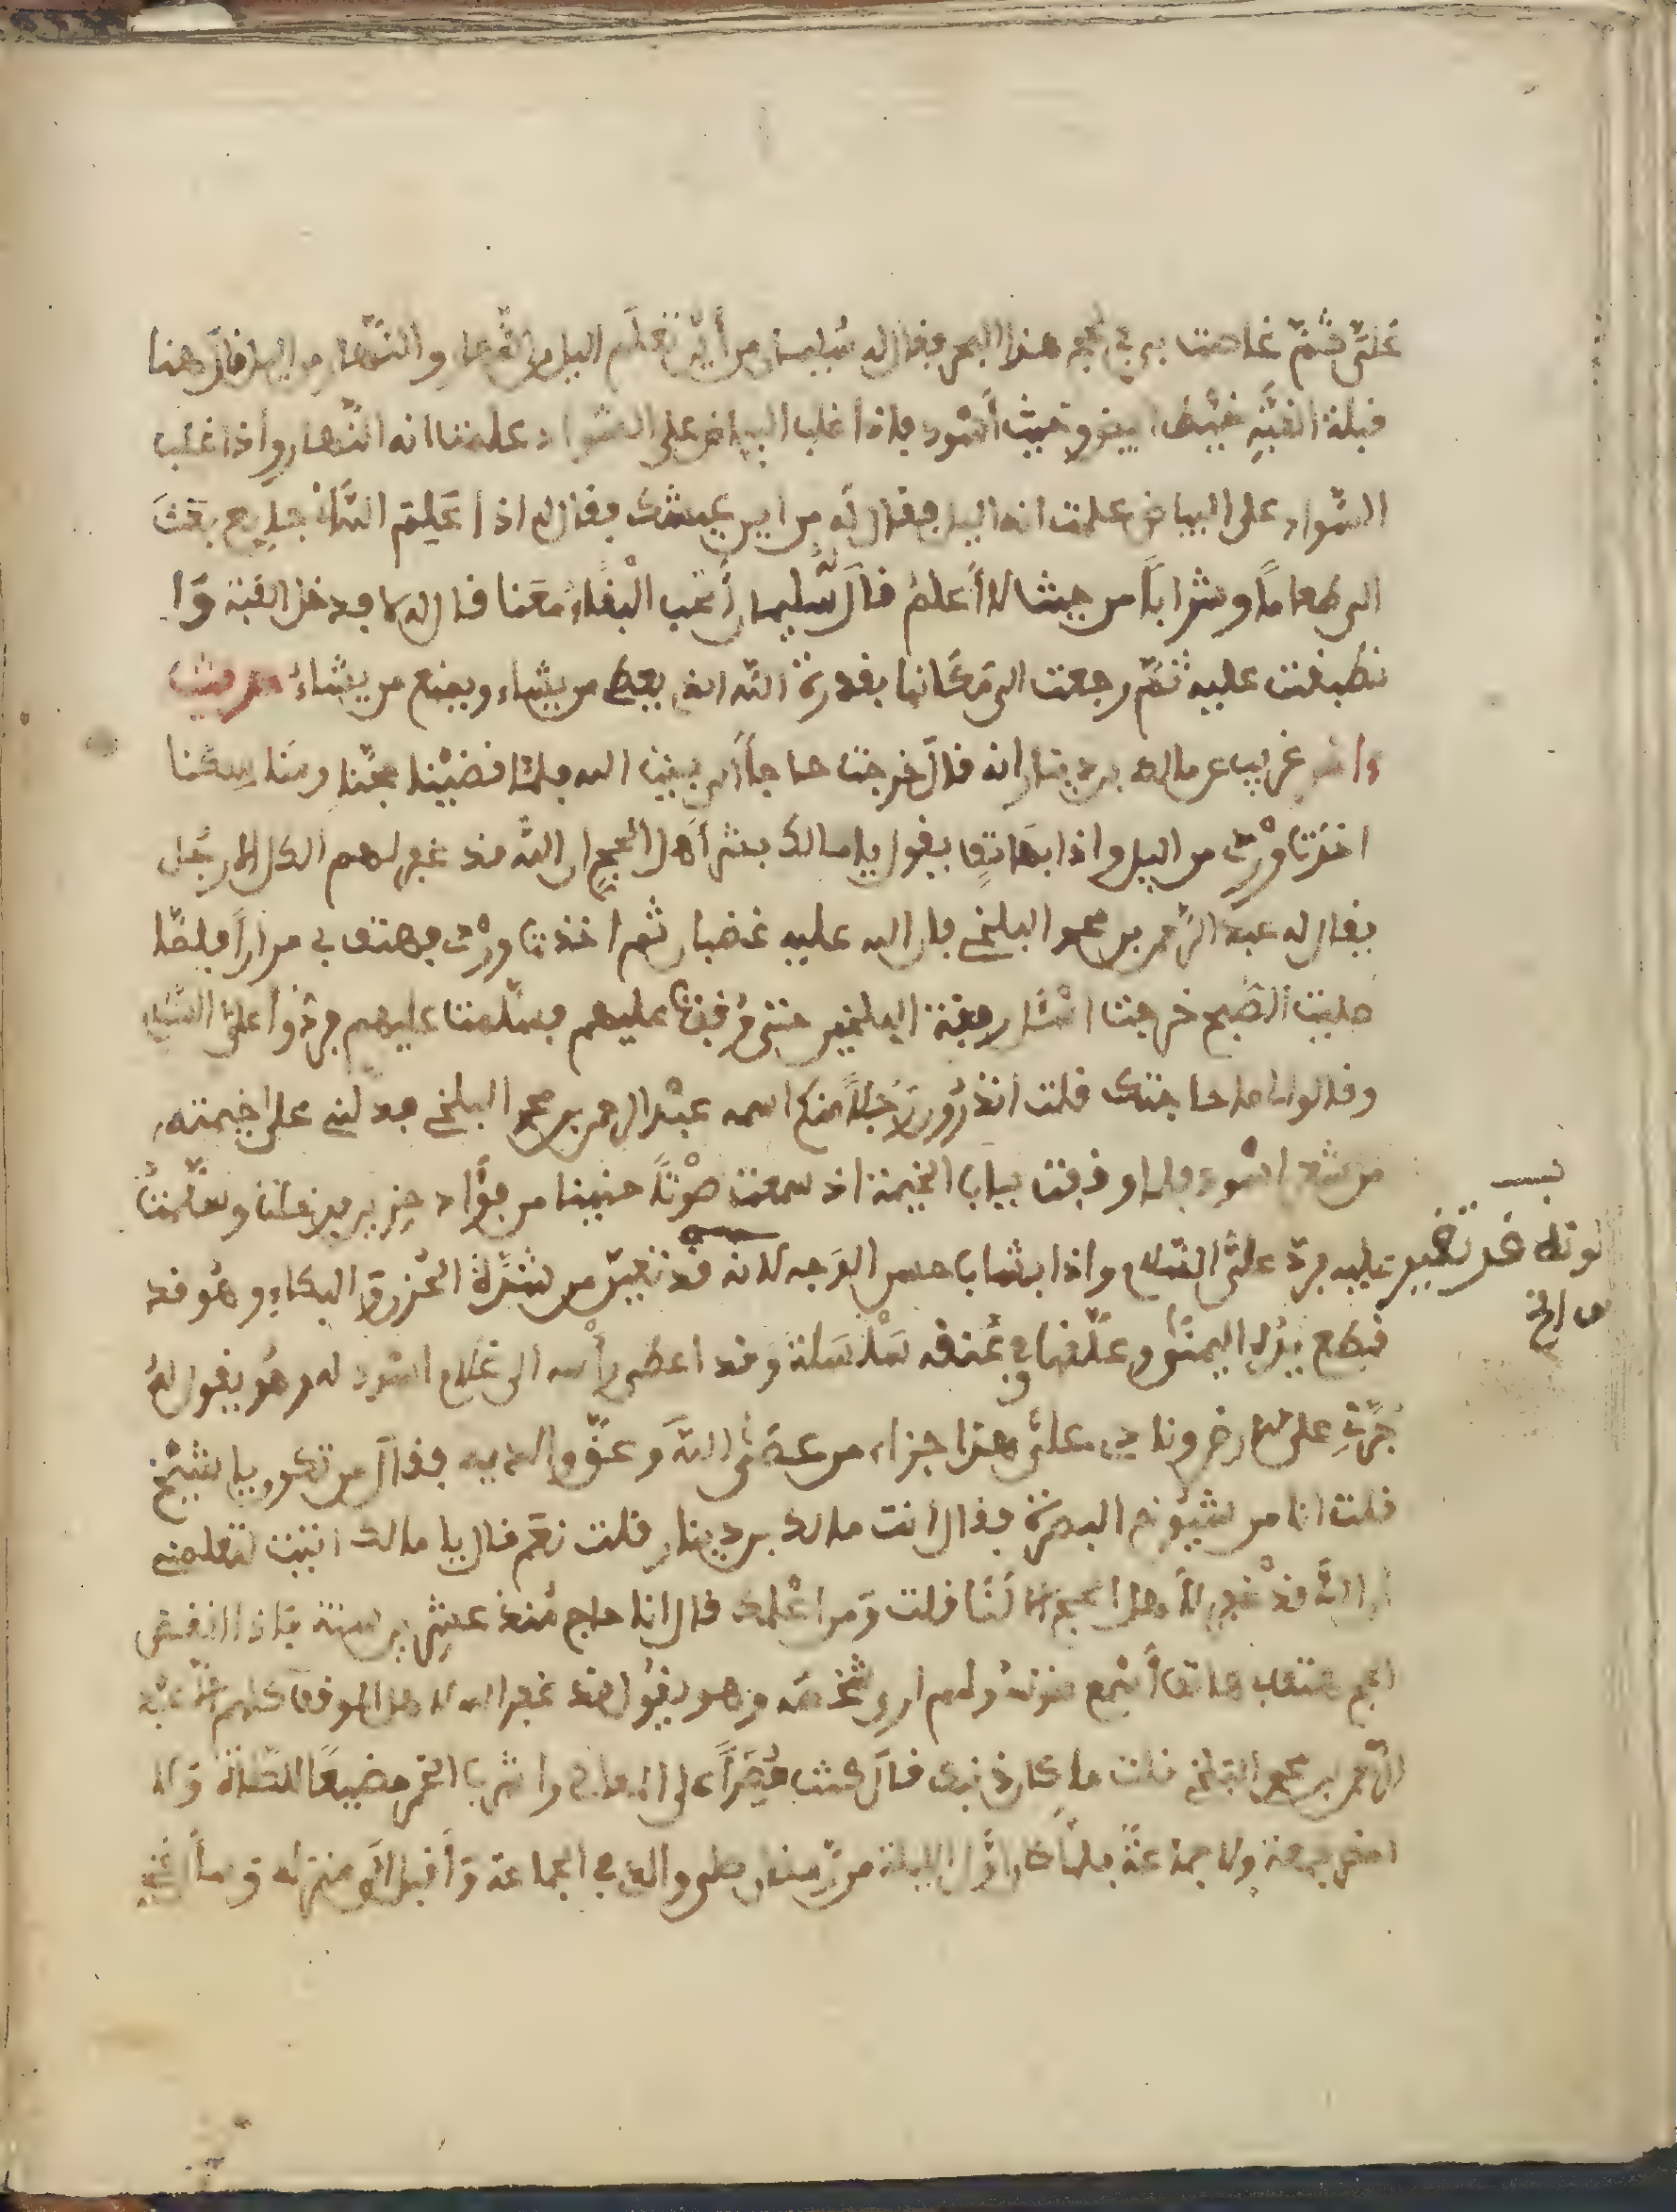 عَلَيَّ ثُمَّ غاصت بي في لجج هذا البحر فقال له سُليمان من أين تَعْلَم اليل من النَّهار والنَّهار من اليل فقال هنا
قبلة القُبَّةِ خَيْط ابيض وخيط أسْود فاذا غلب البياض على السَّواد علمتُ انه النَّهار واذا غلب
السَّواد على البياض علمت انه اليل فقال له من اين عيشك فقال اذا
الى طعاماً وشراباً من حيث لا أعلمُ قالَ له سليمان أتحب البْقاء معَنا قال لا فدخل القبة وَا
نطبقت عليه ثمّ رجعت الى مَكَانها بقدرة الله الذي يعطي من يشاء ويمنع من يشاءُ حديث
واثر غريب عن مالك بن دينار انه قال خرجت حاجاً الى بيت الله فلما قضيْنا حجَّنا ومناسكنا
اخذتنا من اليل واذا بهَاتِفٍ يقول يا مالك بشر أهل الحجِ ان الله قد غفر لهم الكل الا رجُل
يقال له عبد الرَّحمن بن محمد البلخي فان الله عليه غضبان ثم اخذتنا فهتف بي مراراً فلمَّا
صليت الصُّبح خرجت انشد رفقة البلخيين حتى وقفت عليهم فسلمت عليهم فردُّوا علَيَّ السَّلام
وقالوا ما حاجتك قلت رَجُلاً منكم اسمه عبْد الرحمن بن محمد البلخي فدلني على خيمته
من شعر اسْود فلما وقفت بباب الخيمة اذ سمعت صوْتاً حنينا من فؤاد حزين فدخلت وسلَّمتُ
عليه فردّ علَيَّ السّلام واذا بشاب حسن الوَجه لانه قدْ تغيّر من شدَّة الحُزن والبكاء وهُو قد
قطع يدِه اليمنَى وعلَّقها في عُنقه سَلْسَلة وقد اعطى رأسه الى غلام اسْود له وهو يقول لهُ
جُرَّنِ على الارض ونادي علَيَّ هذا جزاء من عصَى اللهَ وعقّ والديه فقالَ من تكون يا شيْخ
قلت انا من شيُوخ البصرة فقال أنت مالك بن دينار قلت نَعَم قال يا مالك اتيت لتعلمني
ان الله قدْ غفر لأهل الحج الا أنَا قلت ومن اعْلمك قال انا حاج مُنذ عشرين سنة فاذا انقضى
الحج هتف هاتف أسْمع صوته ولم ار شخصه وهو يقُول قد غفر الله لاهل الموقف كلهم الا عبْد
الرَّحمن بن محمد البَلخي قلت ما كان ذنبك قالَ كنت مُصِراً على المعاصي واشرب الخمر مضيعاً للصَّلاة وَلا
احضر جمعة ولا جماعةً فلمَّا كان أوَّل ليلة من رَّمضان صلى والدي في الجماعة وَأقبل الى منزله